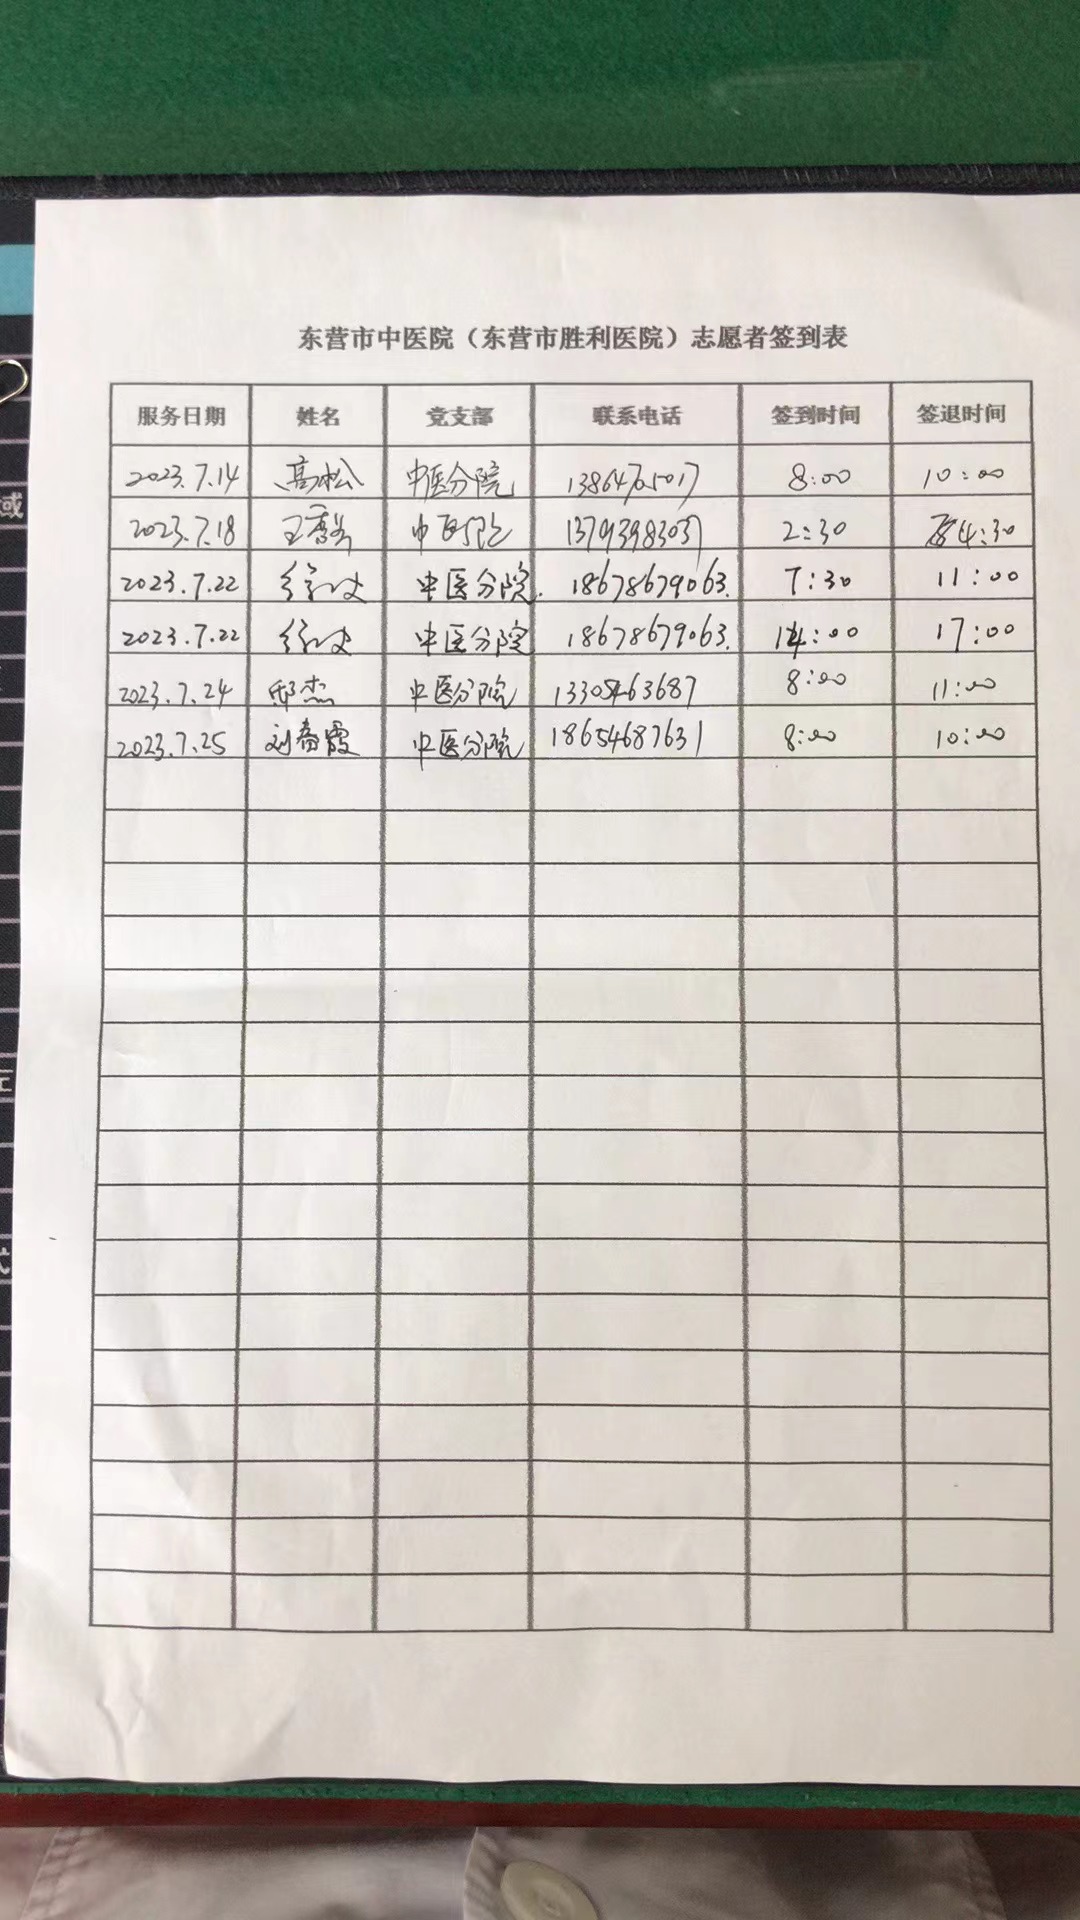 东营市中医院（东营市胜利医院）志愿者签到表
服务日期 姓名 党支部 联系电话 签到时间 签退时间
2023.7.14 高松 中医分院 8:00 10:00
2023.7.18 王 13793983037 2:30 4:30
2023.7.22 中医分院 18678679063. 7:30 11:00
2023.7.22 中医分院 18678679063. 14:00 17:00
2023.7.24 邢杰 中医分院 13305463687 8:00 11:00
2023.7.25 刘春霞 中医分院 18654687631 8:00 10:00
域